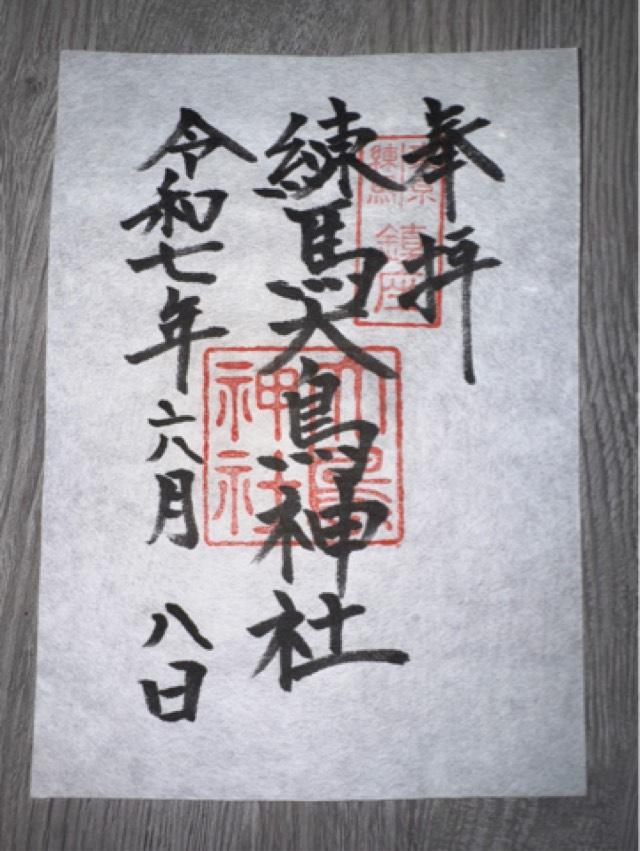 奉拝
練馬大鳥神社
令和七年六月八日
練馬
鎮座
大鳥
神社